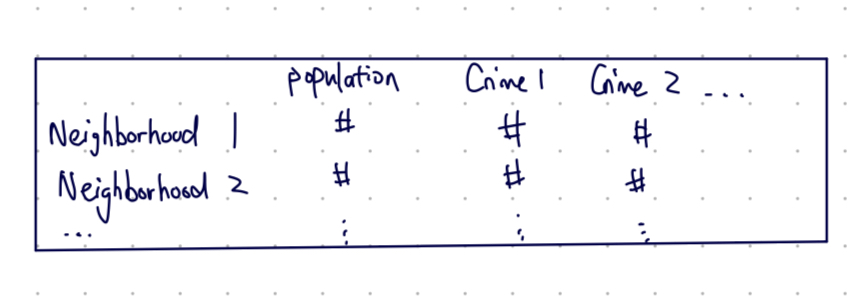 population Crime 1 Crime 2 ...
Neighborhood 1 # # #
Neighborhood 2 # # #
... ⋮ ⋮ ⋮